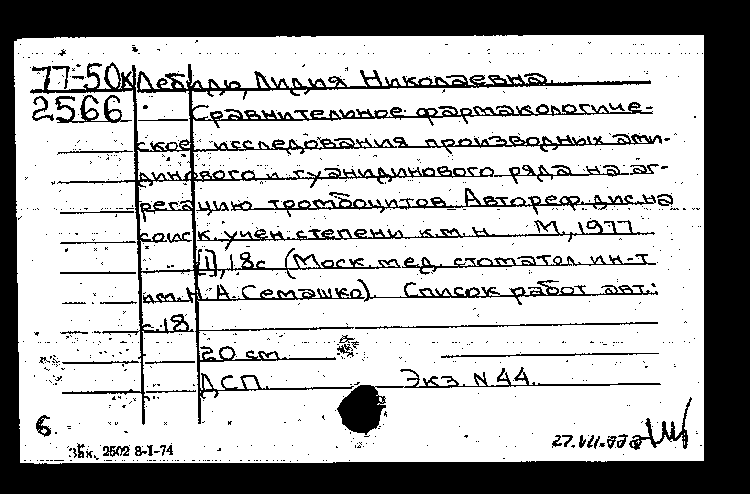 77-50к Лебидь, Лидия Николаевна
2566 Сравнительное фармакологиче-
ское исследования производных ами-
динового и гуанидинового ряда на аг-
регацию тромбоцитов. Автореф. дис. на
соиск. учен. степени к.м.н. М., 1977
[1], 18с (Моск. мед. стоматол. ин-т
им. Н. А. Семашко). Список работ авт.:
с.18
20 см.
ДСП. Экз. N 44.
6
Зак. 2502 8-I-74
27.VII.77